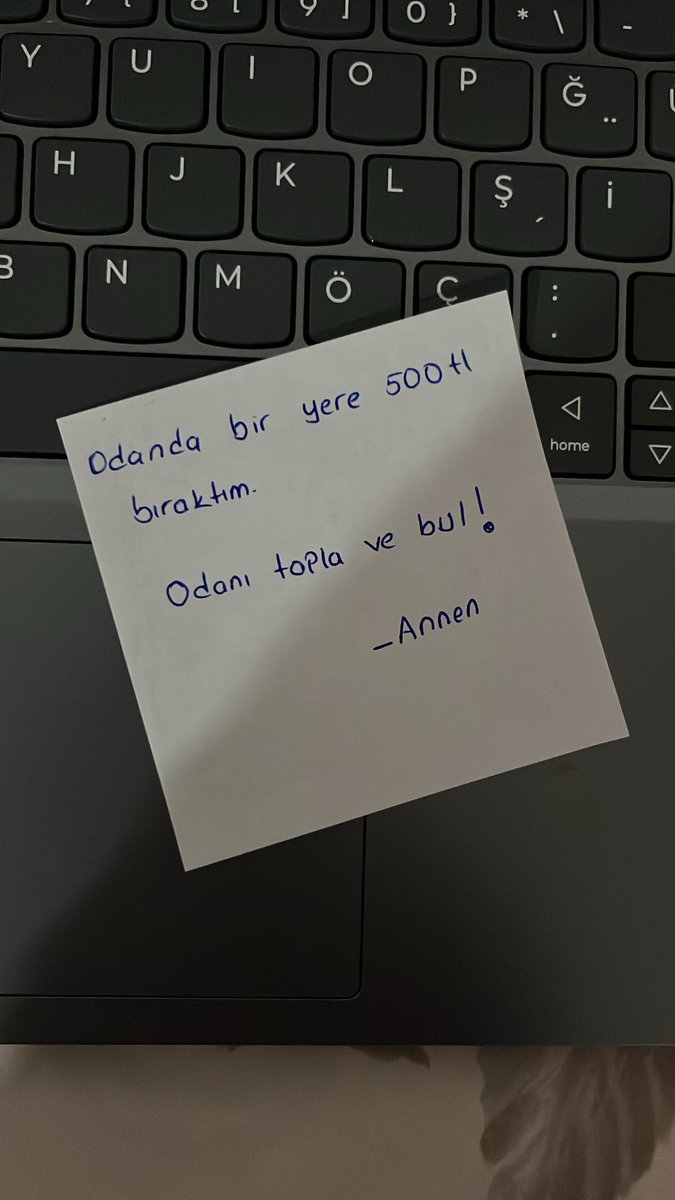 9 ]
0 }
* \
-
Y U I O P Ğ ¨
H J K L Ş ´ İ
B N M Ö Ç : .
home
Odanda bir yere 500tl
bıraktım.
Odanı topla ve bul!
_Annen